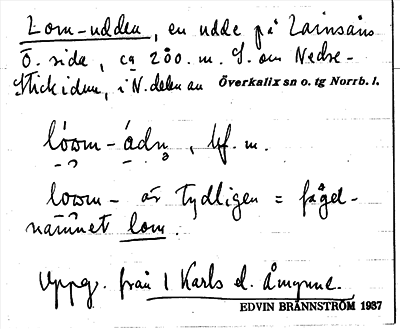 Lom-udden, en udde på Lainsäns
Ö. side, ca 200. m. S. om Nedre-
Stickidun, i N. delen av Överkalix sn o. tg Norrb. l.
lóom-ádn, bf. m.
loom- är tydligen = fågel-
namnet lom.
Uppg. från 1 Karls d. Åmynne.
EDVIN BRÄNNSTRÖM 1937